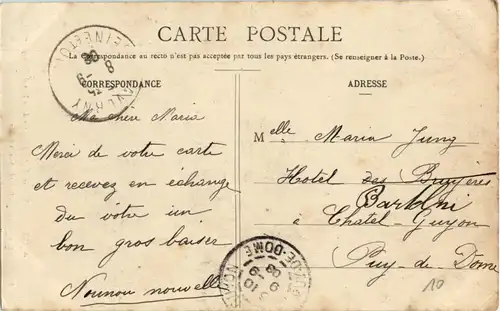 CARTE POSTALE
La correspondance au recto n'est pas acceptée par tous les pays étrangers. (Se renseigner à la Poste.)
CORRESPONDANCE
Ma chère Maria
Merci de votre carte
et recevez en échange
du vôtre un
bon gros baiser
Nounou nouvelle
ADRESSE
Melle Maria Jung
Hotel des Bruyères
à Chatel-Guyon
Puy-de-Dome
10
PUY-DE-DOME